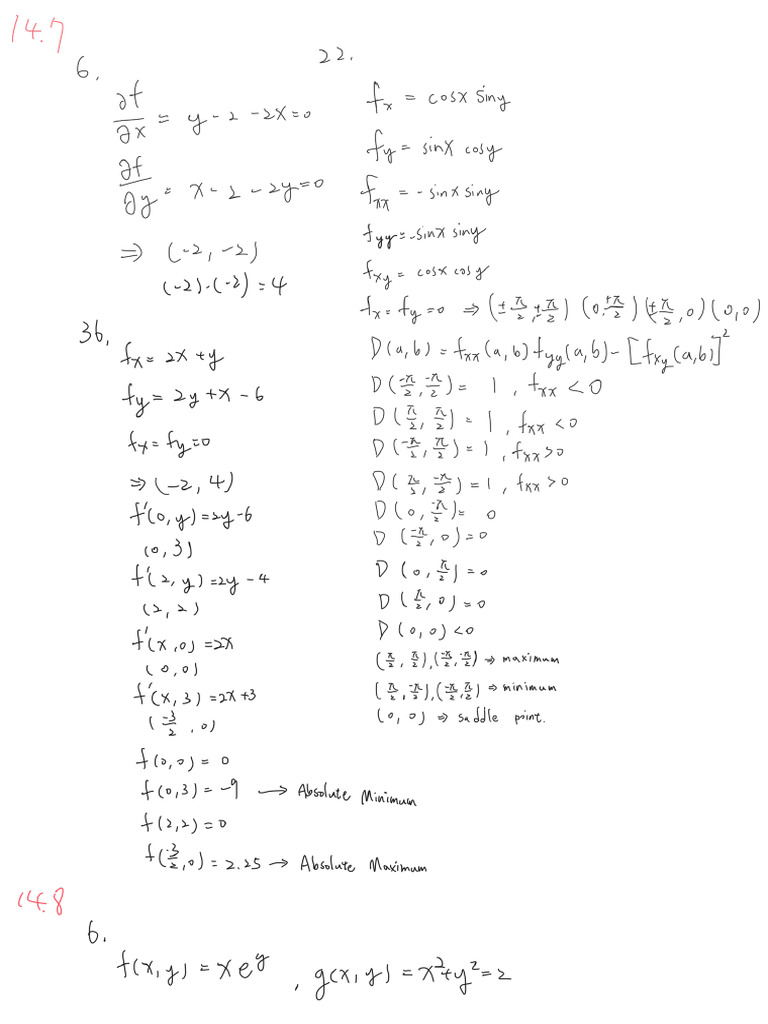 14.7
6.
∂f/∂x = y - 2 - 2x = 0
∂f/∂y = x - 2 - 2y = 0
⇒ (-2, -2)
(-2)·(-2) = 4
36.
fx = 2x + y
fy = 2y + x - 6
fx = fy = 0
⇒ (-2, 4)
f'(0, y) = 2y - 6
(0, 3)
f'(2, y) = 2y - 4
(2, 2)
f'(x, 0) = 2x
(0, 0)
f'(x, 3) = 2x + 3
(-3/2, 0)
f(0, 0) = 0
f(0, 3) = -9 → Absolute Minimum
f(2, 2) = 0
f(-3/2, 0) = 2.25 → Absolute Maximum
22.
fx = cosx siny
fy = sinx cosy
fxx = - sinx siny
fyy = - sinx siny
fxy = cosx cosy
fx = fy = 0 ⇒ (±π/2, ±π/2) (0, ±π/2) (±π/2, 0) (0, 0)
D(a, b) = fxx(a, b) fyy(a, b) - [fxy(a, b)]²
D(-π/2, -π/2) = 1, fxx < 0
D(π/2, π/2) = 1, fxx < 0
D(-π/2, π/2) = 1, fxx > 0
D(π/2, -π/2) = 1, fxx > 0
D(0, -π/2) = 0
D(-π/2, 0) = 0
D(0, π/2) = 0
D(π/2, 0) = 0
D(0, 0) < 0
(π/2, π/2), (-π/2, -π/2) ⇒ maximum
(π/2, -π/2), (-π/2, π/2) ⇒ minimum
(0, 0) ⇒ saddle point.
14.8
6.
f(x, y) = x e^y, g(x, y) = x² + y² = 2